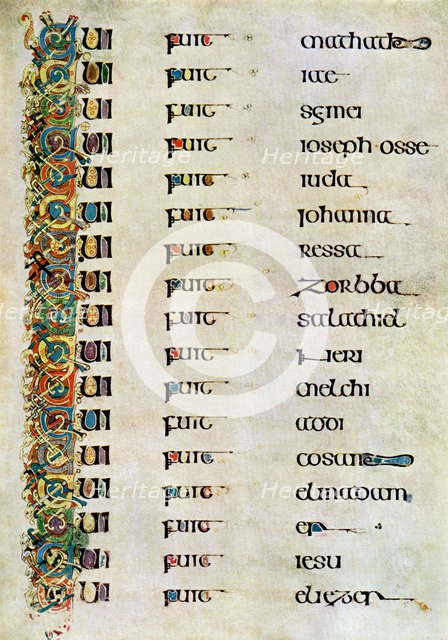 Qui fuit mathath
Qui fuit iae
Qui fuit semei
Qui fuit ioseph osse
Qui fuit iuda
Qui fuit iohanna
Qui fuit ressa
Qui fuit zorbba
Qui fuit salathiel
Qui fuit neri
Qui fuit melchi
Qui fuit addi
Qui fuit cosam
Qui fuit elmadam
Qui fuit er
Qui fuit iesu
Qui fuit eliezer
Heritage
Images
©